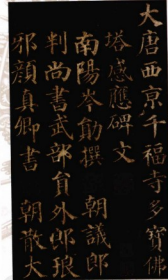 大唐西京千福寺多寶佛
塔感應碑文
南陽岑勛撰　朝議郎
判尚書武部員外郎琅
邪顏真卿書　朝散大